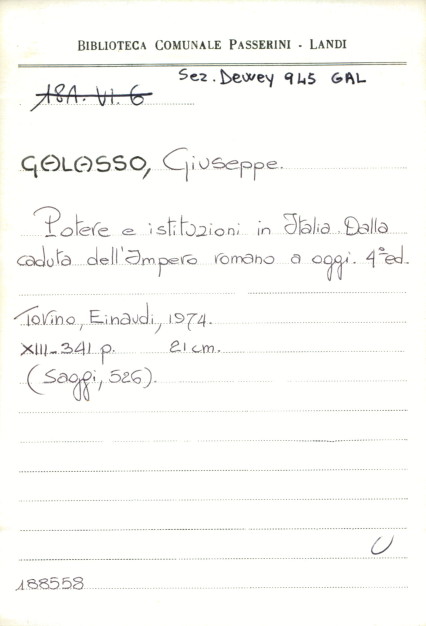 BIBLIOTECA COMUNALE PASSERINI - LANDI
Sez. Dewey 945 GAL
18A. VI. 6
GALASSO, Giuseppe.
Potere e istituzioni in Italia. Dalla
caduta dell'Impero romano a oggi. 4ªed.
Torino, Einaudi, 1974.
XIII-341 p. 21 cm.
(Saggi, 526).
U
188558